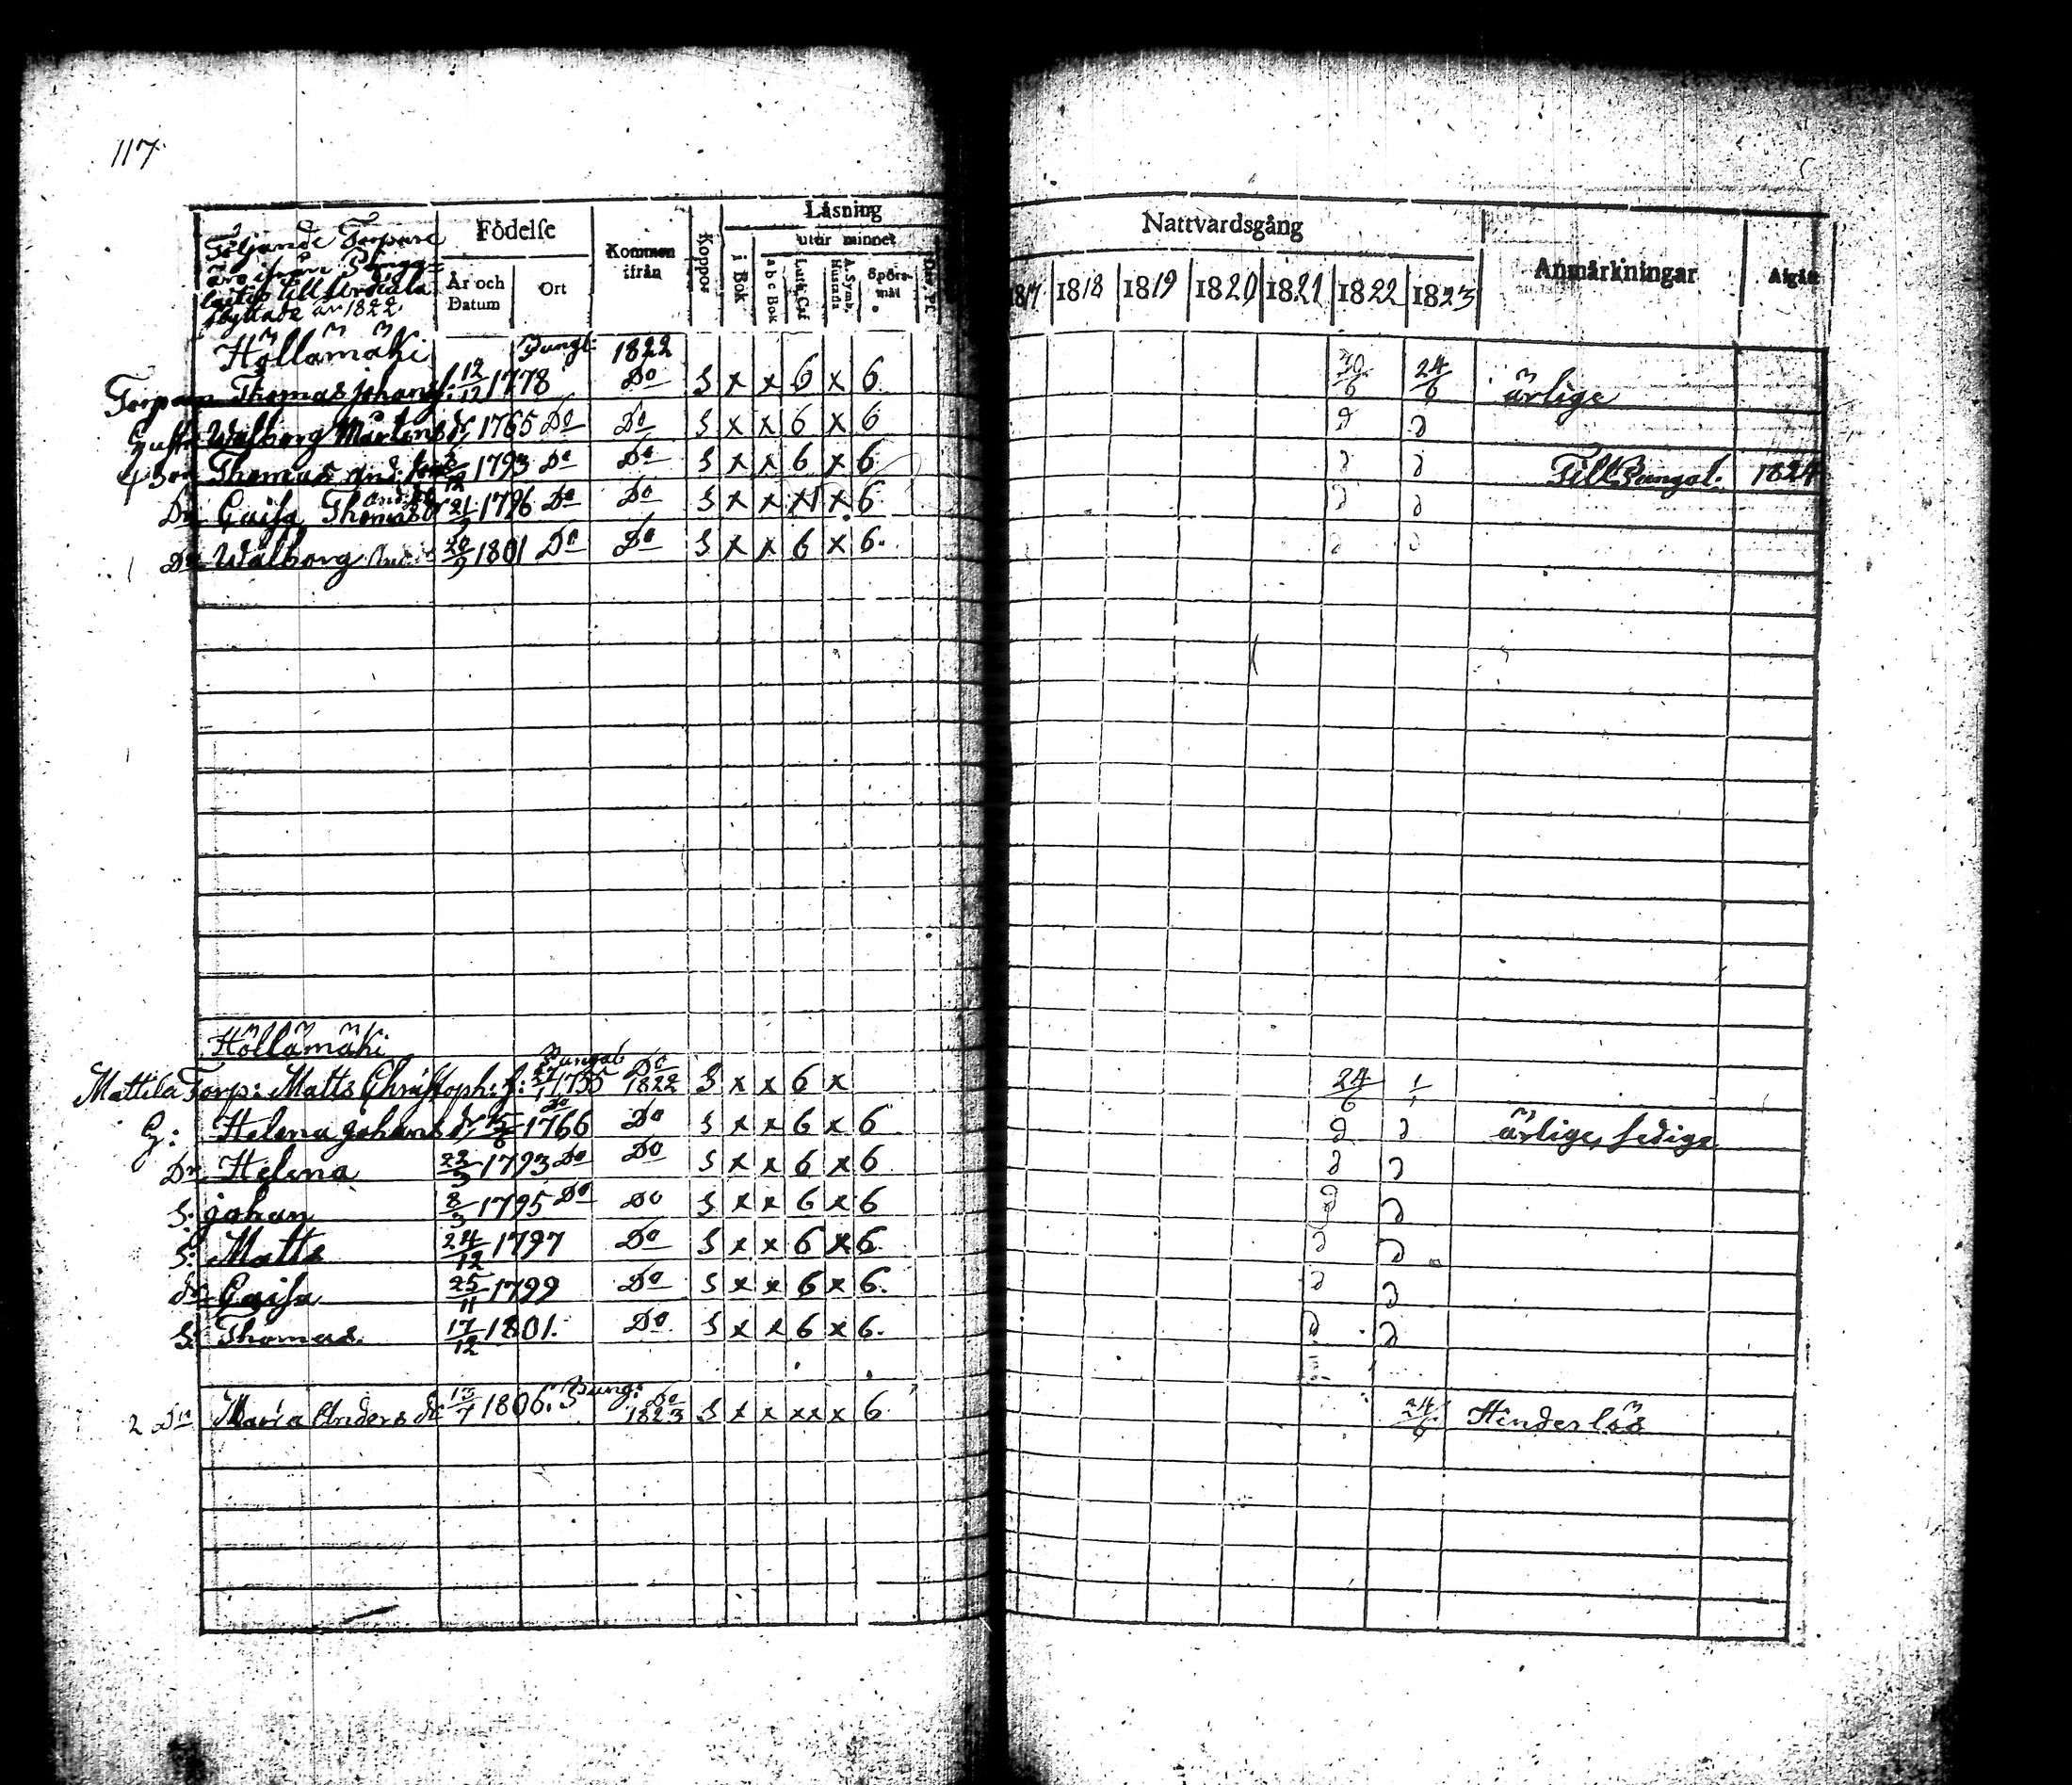 117
Följande Torpare
äro ifrån
till
flyttade år 1822.
Födelse
År och Datum
Ort
Kommen ifrån
Koppor
Läsning
i Bok
utur minnet
a b c Bok
Luth. Cat.
A. Symb. Hustafla
Spörsmål
Nattvardsgång
1817 1818 1819 1820 1821 1822 1823
Anmärkningar
Afgått
Höllämäki Pungl: 1822
Torparn Thomas johans f: 12/12 1778 Do S x x 6 x 6 30/6 24/6 ärlige
Hustr Walborg Mårtens dr 1765 Do Do S x x 6 x 6 d d
Son Thomas And: 1793 Do Do S x x 6 x 6 d d Till Pungal. 1824
Dr Caisa Thomas dr 21 1796 Do Do S x x x x 6 d d
Dr Walborg 20/9 1801 Do Do S x x 6 x 6. d d
Höllämäki
Mattila Torp: Matts Christoph: f: 1755 Pungal Do 1822 S x x 6 x 24/6 1/1
H: Helena johans dr 1766 Do Do S x x 6 x 6 d d ärlige, sedige
Dr Helena 22/3 1793 Do Do S x x 6 x 6 d d
S. johan 8/3 1795 Do Do S x x 6 x 6 d d
S: Matts 24/12 1797 Do S x x 6 x 6 d d
dr Caisa 25/11 1799 Do S x x 6 x 6. d d
S: Thomas. 17/12 1801. Do S x x 6 x 6. d d
2 Dr Maria Anders dr 1806. Pung: Do 1823 S x x xx x 6 24/6 Hinderlös